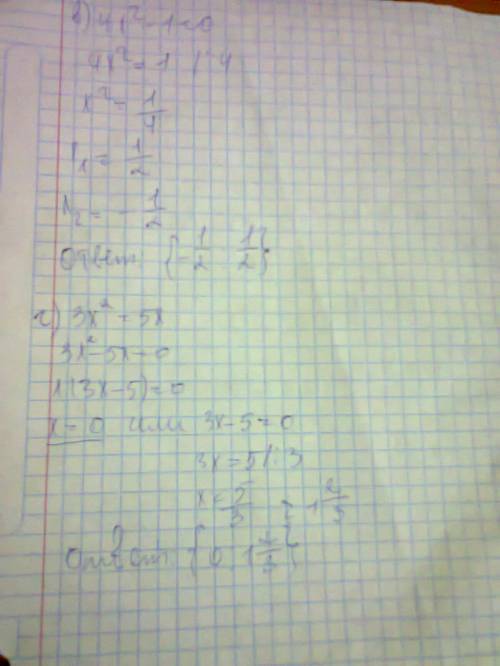 в) 4x² - 1 = 0
4x² = 1 | : 4
x² = 1/4
x₁ = 1/2
x₂ = - 1/2
ответ {- 1/2 1/2}
г) 3x² = 5x
3x² - 5x = 0
x(3x - 5) = 0
x = 0 или 3x - 5 = 0
3x = 5 | : 3
x = 5/3 = 1 2/3
ответ { 0 1 2/3 }